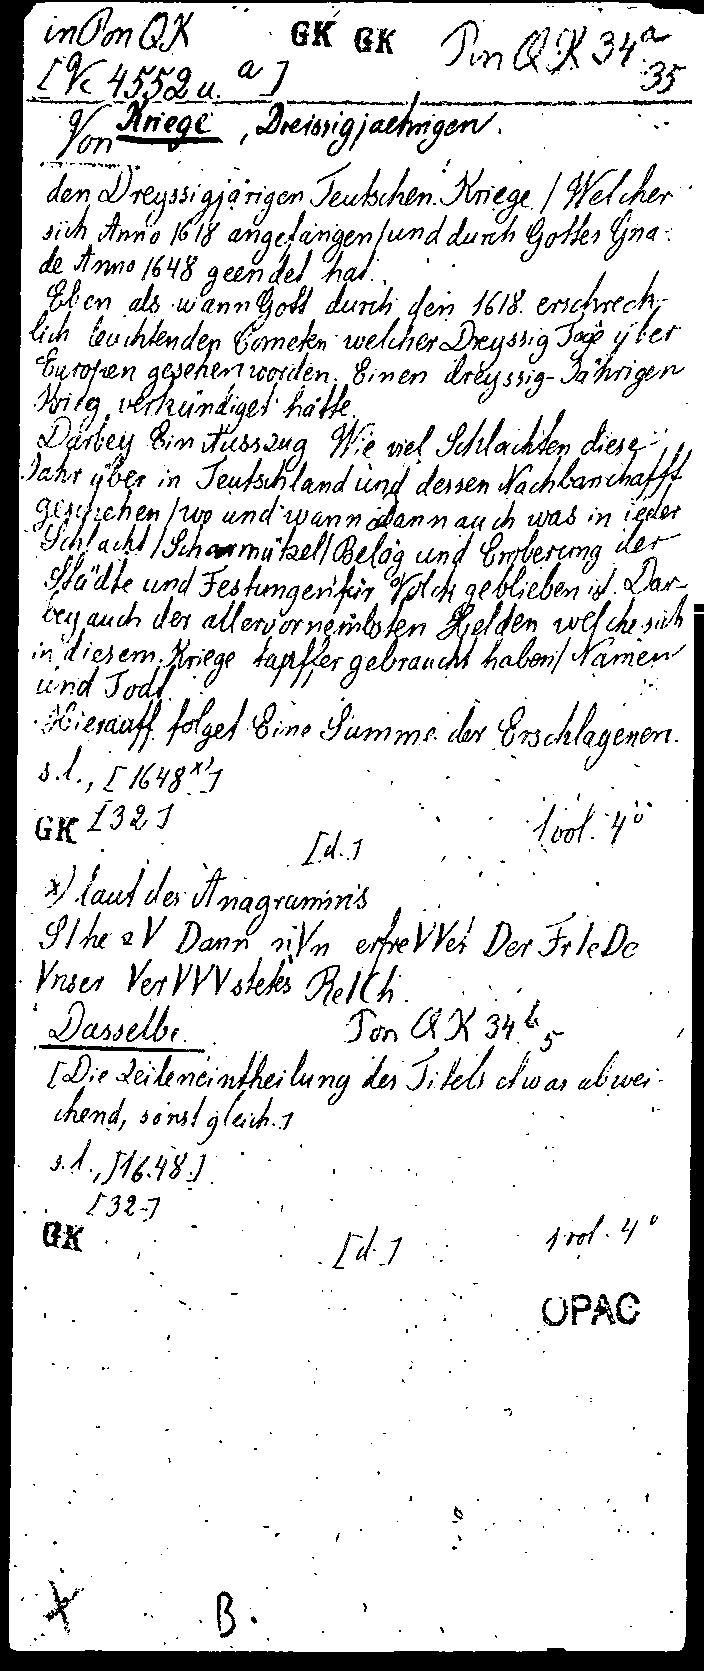 in Pon QK GK GK Pon QK 34a
[Vc 4552 u. a] 35
Von Kriege, Dreissigjaehrigen.
den Dreyssigjärigen Teutschen Kriege / Welcher
sich Anno 1618 angefangen / und durch Gottes Gna-
de Anno 1648 geendet hat.
Eben als wann Gott durch den 1618. erschreck-
lich leuchtenden Cometen welcher Dreyssig Tage yber
Europen gesehen worden. Einen dreyssig-Jährigen
Krieg verkündiget hätte.
Darbey Ein Ausszug Wie viel Schlachten diese
Jahr yber in Teutschland und dessen Nachbarschafft
geschehen / wo und wann dann auch was in ieder
Schlacht / Scharmützel / Beläg und Eroberung der
Städte und Festungen für Volck geblieben ist. Dar-
bey auch der allervornembsten Helden welche sich
in diesem Kriege tapffer gebraucht haben / Namen
und Todt.
Hierauff folget Eine Summe der Erschlagenen.
s.l., [1648x)]
GK [32]
[d.] 1 vol. 4°
x) laut des Anagramms
SIhe Dann erfreVVet Der FrIeDe
Vnser VerVVVstetes ReICh.
Dasselbe. Pon QK 34b 5
[Die Zeileneintheilung des Titels etwas abwei-
chend, sonst gleich.]
s.l., [1648.]
[32.]
GK [d.] 1 vol. 4°
OPAC
B.